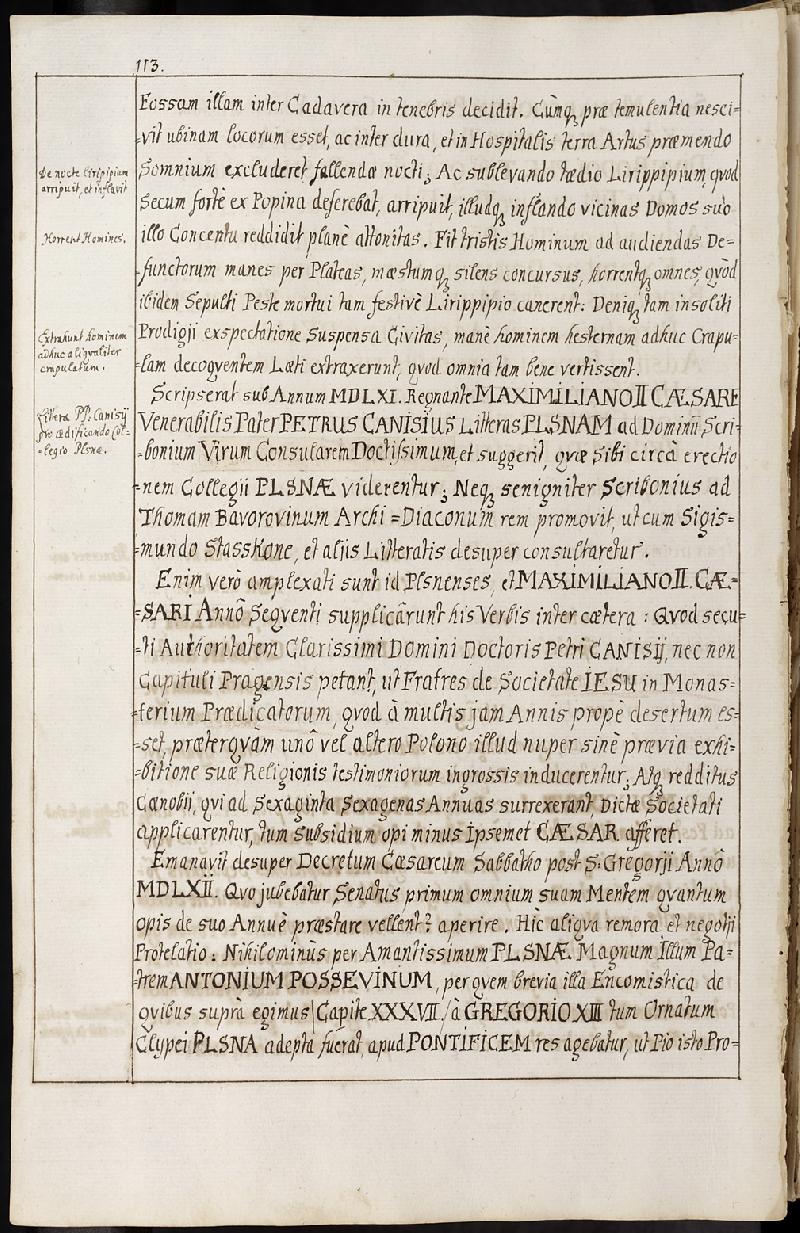 113.
Fossam illam inter Cadavera in tenebris decidit. Cùnqꝫ præ temulentia nesci=
=vit ubinam locorum esset, ac inter dura, et in Hospitalis terra Artus præmendo
Somnium excluderet fallendæ nocti; Ac sublevando tædio Lirippipium, qvod
De nocte Liripipium
arripuit, et inflavit
Secum fortè ex Popina deferebat, arripuit, illudqꝫ inflando vicinas Domos suo
illo Concentu reddidit planè attonitas. Fit tristis Hominum ad audiendas De=
Horrent Homines.
=functorum manes per Plateas, mæstumqꝫ silens concursus, horrentqꝫ omnes, qvòd
ibidem Sepulti Peste mortui tam festivè Lirippipio canerent: Deniqꝫ tam insoliti
Prodigij exspectatione Suspensa Civitas, manè hominem hesternam adhuc Crapu=
Extrahunt hominem
adhuc aliqvaliter
crapulatum.
=lam decoqventem Læti extraxerunt, qvod omnia tam bene vertissent.
Scripserat sub Annum MDLXI. Regnante MAXIMILIANO II CÆSARE
Venerabilis Pater PETRUS CANISIUS Litteras PLSNAM ad Dominū Scri=
Littera PP. Canisij
pro ædificando Col=
=legio Plsnæ.
=bonium Virum Consularem Doctissimum, et suggerit, qvæ Sibi circà erectio
=nem Collegij PLSNÆ viderentur; Neqꝫ senigniter Scribonius ad
Thomam Bavorovinum Archi=Diaconum rem promovit, ut cum Sigis=
=mundo Stasskone, et alijs Litteratis desuper consultaretur.
Enim verò amplexati sunt id Plsnenses, et MAXIMILIANO II. CÆ=
=SARI Annô Seqventi supplicârunt his Verbis inter cætera: Qvod secu=
=ti Authoritatem Clarissimi Domini Doctoris Petri CANISIJ, nec non
Capituli Pragensis petant, ut Fratres de Societate IESU in Monas=
=terium Prædicatorum, qvod à multis jam Annis propè desertum es=
=set, præterqvam unô vel altero Polono illud nuper sinè prævia exhi=
=bitione suæ Religionis testimoniorum ingrossis inducerentur; Atqꝫ redditus
Cænobij, qvi ad Sexaginta Sexagenas Annuas surrexerant, Dictæ Societati
applicarentur, tum Subsidium opi minus Ipsemet CÆSAR afferet.
Emanavit desuper Decretum Cæsareum Sabbatho post S. Gregorji Annô
MDLXII. Qvo jubebatur Senatus primum omnium suam Mentem qvantum
opis de suo Annuè præstare vellent? aperire. Hìc aliqva remora et negotij
Protelatio: Nihilominùs per Amantissimum PLSNÆ Magnum Illum Pa=
=trem ANTONIUM POSSEVINUM, per qvem brevia illa Encomistica de
qvibus suprà egimus /Capite XXXVII./ à GREGORIO XIII tum Ornatum
Clypei PLSNA adepta fuerat, apud PONTIFICEM res agebatur, ut Pio isto Pro=